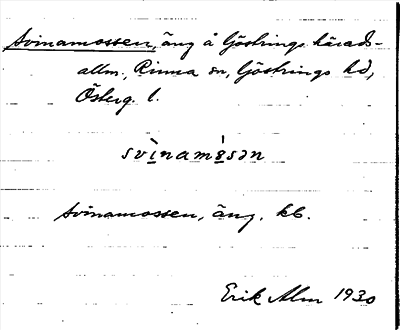 Svinamossen, äng å Göstrings härads-
allm., Rinna sn, Göstrings hd,
Österg. l.
svìnamɵ̀sən
Svinamossen, äng. kb.
Erik Alm 1930